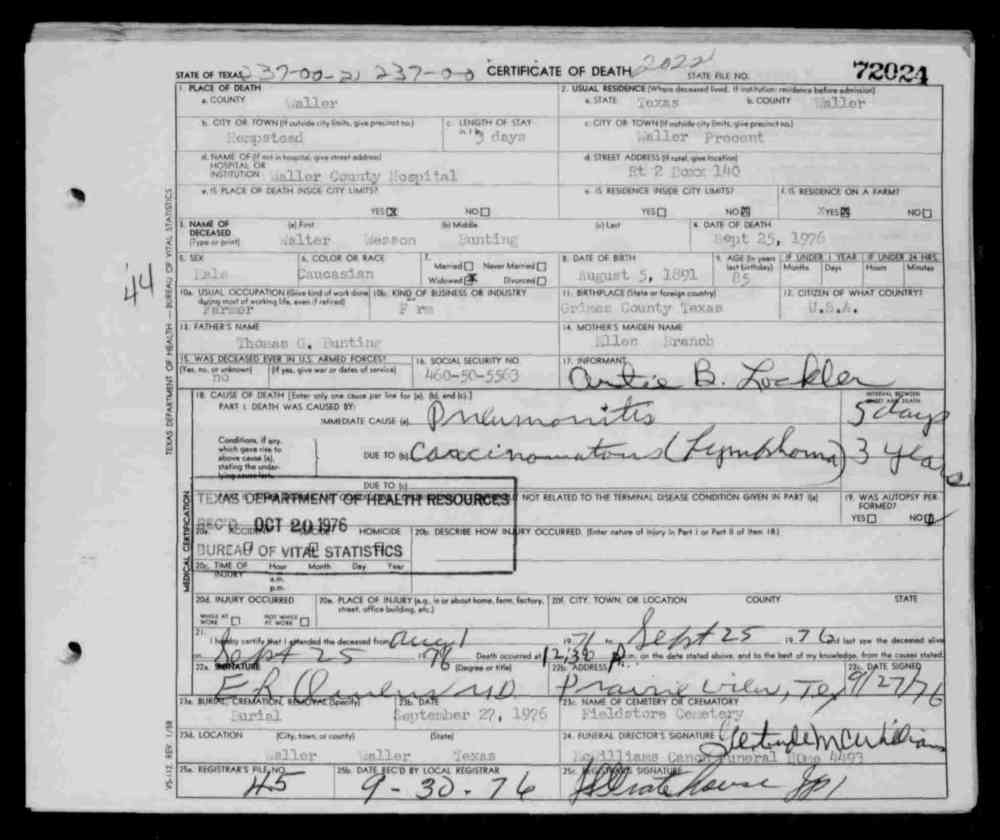 STATE OF TEXAS 237-00-21 237-00 CERTIFICATE OF DEATH 2022 STATE FILE NO. 72024
1. PLACE OF DEATH 2. USUAL RESIDENCE (Where deceased lived. If institution: residence before admission)
a. COUNTY Waller a. STATE Texas b. COUNTY Waller
b. CITY OR TOWN (If outside city limits, give precinct no.) c. LENGTH OF STAY c. CITY OR TOWN (If outside city limits, give precinct no.)
Hempstead 5 days Waller Precent
d. NAME OF (If not in hospital, give street address) d. STREET ADDRESS (If rural, give location)
HOSPITAL OR
INSTITUTION Waller County Hospital Rt 2 Boxx 140
e. IS PLACE OF DEATH INSIDE CITY LIMITS? e. IS RESIDENCE INSIDE CITY LIMITS? f. IS RESIDENCE ON A FARM?
YES NO YES NO YES NO
3. NAME OF DECEASED (Type or print) (a) First (b) Middle (c) Last 4. DATE OF DEATH
Walter Wesson Bunting Sept 25, 1976
5. SEX 6. COLOR OR RACE 7. Married Never Married Widowed Divorced 8. DATE OF BIRTH 9. AGE (In years last birthday) IF UNDER 1 YEAR IF UNDER 24 HRS.
Months Days Hours Minutes
Male Caucasian August 5, 1891 85
10a. USUAL OCCUPATION (Give kind of work done during most of working life, even if retired) 10b. KIND OF BUSINESS OR INDUSTRY 11. BIRTHPLACE (State or foreign country) 12. CITIZEN OF WHAT COUNTRY?
Farmor F rm Grimes County Texas U.S.A.
13. FATHER'S NAME 14. MOTHER'S MAIDEN NAME
Thomas G. Bunting Ellen Branch
15. WAS DECEASED EVER IN U.S. ARMED FORCES? 16. SOCIAL SECURITY NO. 17. INFORMANT
(Yes, no, or unknown) (If yes, give war or dates of service)
no 460-50-5563 Artie B. Lockler
18. CAUSE OF DEATH [Enter only one cause per line for (a), (b), and (c).] INTERVAL BETWEEN ONSET AND DEATH
PART I. DEATH WAS CAUSED BY:
IMMEDIATE CAUSE (a) Pneumonitis 5 days
Conditions, if any, which gave rise to above cause (a), stating the underlying cause last.
DUE TO (b) Carcinomatous (Lymphoma) 3 years
DUE TO (c)
NOT RELATED TO THE TERMINAL DISEASE CONDITION GIVEN IN PART I(a) 19. WAS AUTOPSY PERFORMED?
YES NO
TEXAS DEPARTMENT OF HEALTH RESOURCES
REC'D OCT 20 1976
BUREAU OF VITAL STATISTICS
20a. ACCIDENT SUICIDE HOMICIDE 20b. DESCRIBE HOW INJURY OCCURRED. (Enter nature of injury in Part I or Part II of item 18.)
20c. TIME OF INJURY Hour Month Day Year
a.m.
p.m.
20d. INJURY OCCURRED 20e. PLACE OF INJURY (e.g., in or about home, farm, factory, street, office building, etc.) 20f. CITY, TOWN, OR LOCATION COUNTY STATE
WHILE AT WORK NOT WHILE AT WORK
21. I hereby certify that I attended the deceased from Aug 1 1971 to Sept 25, 1976 and last saw the deceased alive
on Sept 25 1976 Death occurred at 12:30 p.m. on the date stated above, and to the best of my knowledge, from the causes stated.
22a. SIGNATURE (Degree or title) 22b. ADDRESS 22c. DATE SIGNED
M.D. Prairie View, Tex 9/27/76
23a. BURIAL, CREMATION, REMOVAL (Specify) 23b. DATE 23c. NAME OF CEMETERY OR CREMATORY
Burial September 27, 1976 Fieldstore Cemetery
23d. LOCATION (City, town, or county) (State) 24. FUNERAL DIRECTOR'S SIGNATURE Gertrude McWilliams
Waller Waller Texas McWilliams Canon Funeral Home 4493
25a. REGISTRAR'S FILE NO. 25b. DATE REC'D BY LOCAL REGISTRAR 25c. REGISTRAR'S SIGNATURE
45 9-30-76
'44
TEXAS DEPARTMENT OF HEALTH — BUREAU OF VITAL STATISTICS
MEDICAL CERTIFICATION
VS-112 REV. 1/58